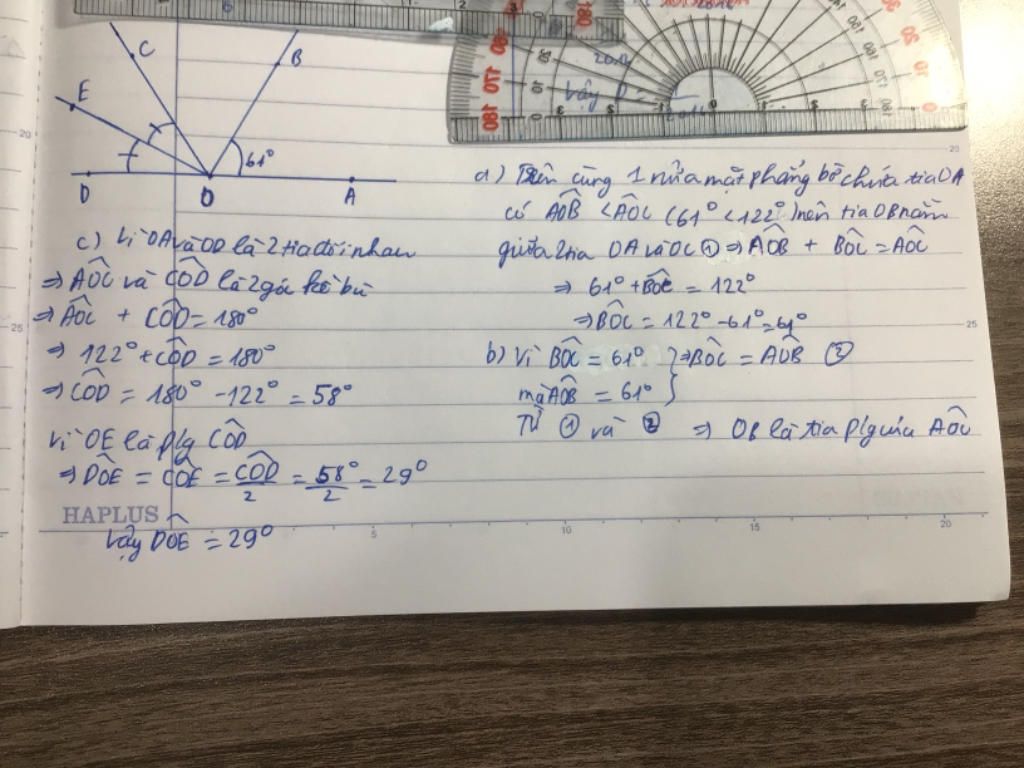 C
B
E
61°
D
O
A
a) Trên cùng 1 nửa mặt phẳng bờ chứa tia OA
có AÔB < AÔC (61° < 122°) nên tia OB nằm
giữa 2 tia OA và OC ① ⇒ AÔB + BÔC = AÔC
⇒ 61° + BÔC = 122°
⇒ BÔC = 122° - 61° = 61°
b) Vì BÔC = 61° } ⇒ BÔC = AÔB ②
mà AÔB = 61°
Từ ① và ② ⇒ OB là tia p/g của AÔC
c) Vì OA và OD là 2 tia đối nhau
⇒ AÔC và CÔD là 2 góc kề bù
⇒ AÔC + CÔD = 180°
⇒ 122° + CÔD = 180°
⇒ CÔD = 180° - 122° = 58°
Vì OE là p/g CÔD
⇒ DÔE = CÔE = CÔD/2 = 58°/2 = 29°
HAPLUS
5 10 15 20
Vậy DÔE = 29°